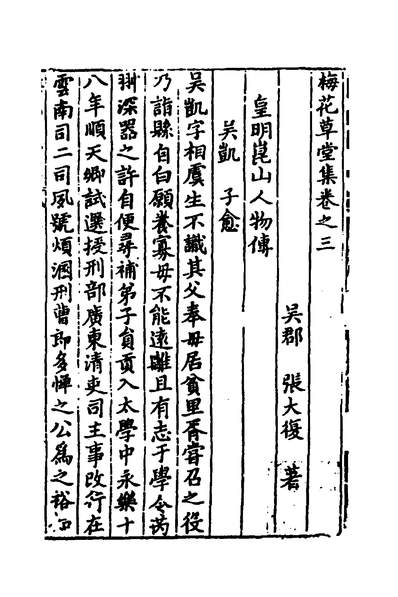 梅花草堂集卷之三
吳郡 張大復 著
皇明崑山人物傳
吳凱 子愈
吳凱字相虞生不識其父奉母居貧里胥嘗召之役
乃詣縣自白願養寡母不能遠離且有志于學令芮
翀深器之許自便尋補弟子員貢入太學中永樂十
八年順天鄉試選授刑部廣東清吏司主事改行在
雲南司二司夙號煩溷刑曹郎多憚之公爲之裕